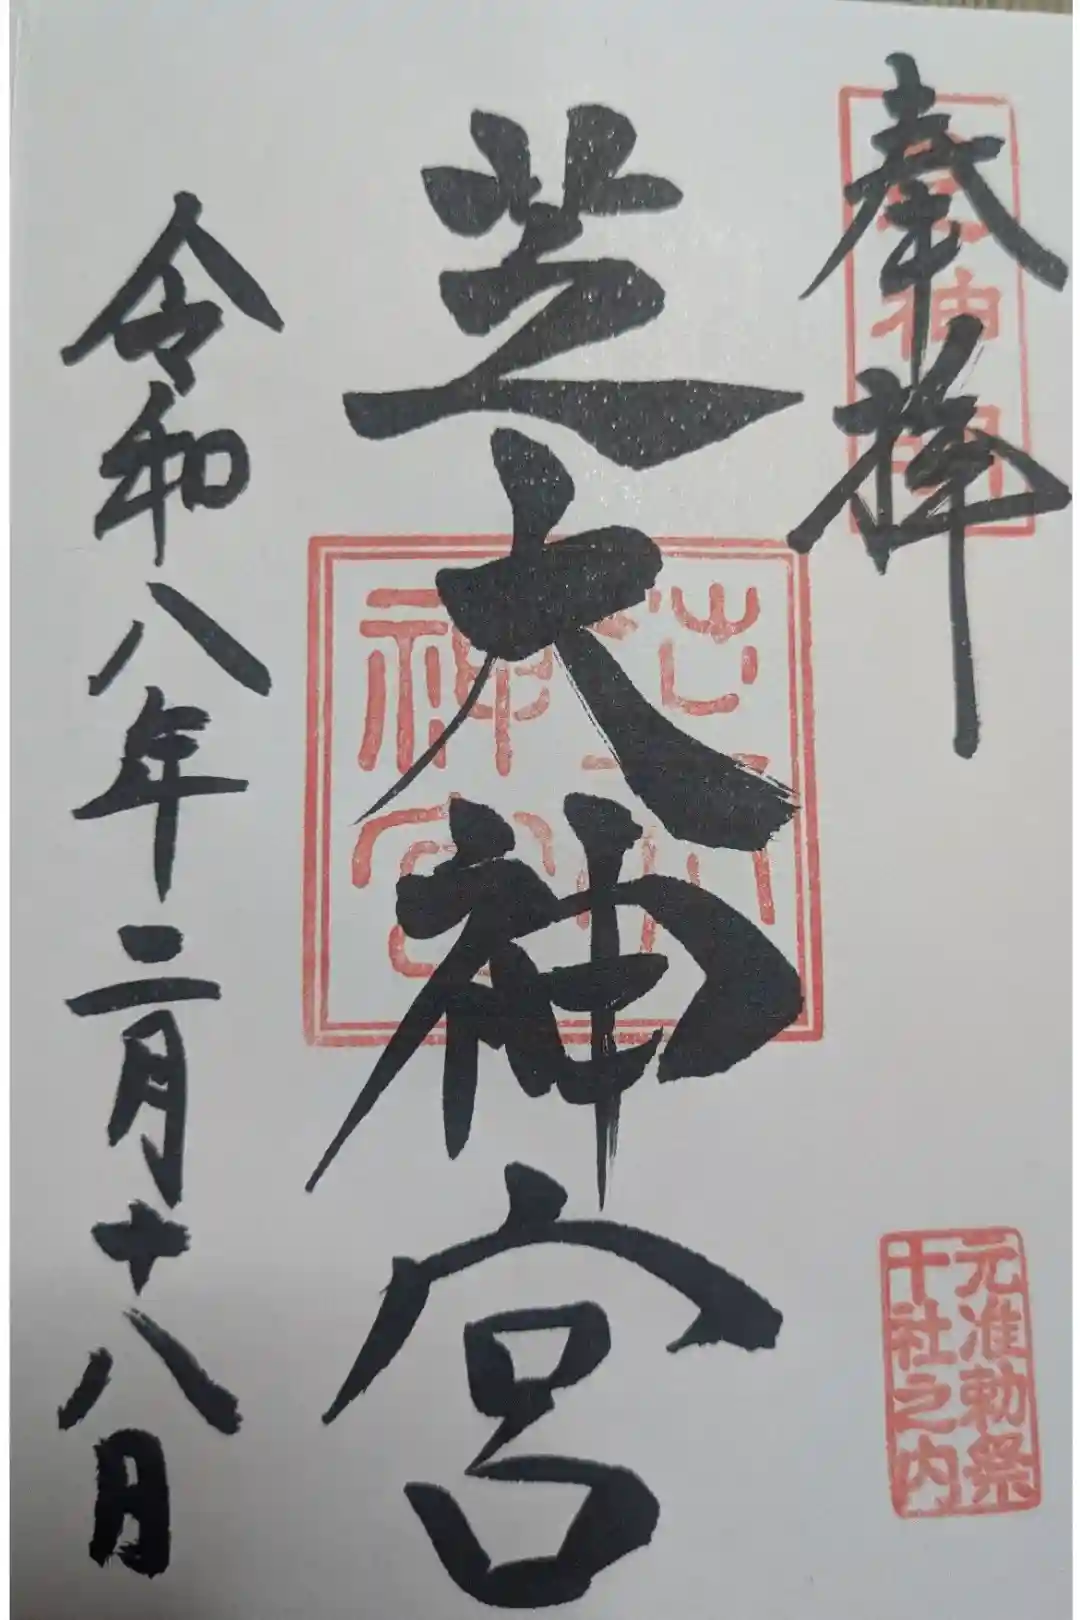 奉拝
元准勅祭
十社之内
芝大神宮
芝大神宮
令和八年二月十八日